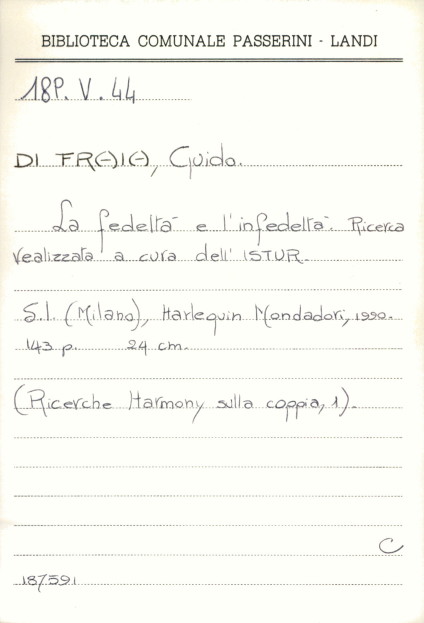 BIBLIOTECA COMUNALE PASSERINI - LANDI
18P. V. 44
DI FR(-)I(-), Guido.
La fedeltà e l'infedeltà. Ricerca
realizzata a cura dell'ISTUR.
S.l. (Milano), Harlequin Mondadori, 1990.
143 p. 24 cm.
(Ricerche Harmony sulla coppia, 1).
C
187591